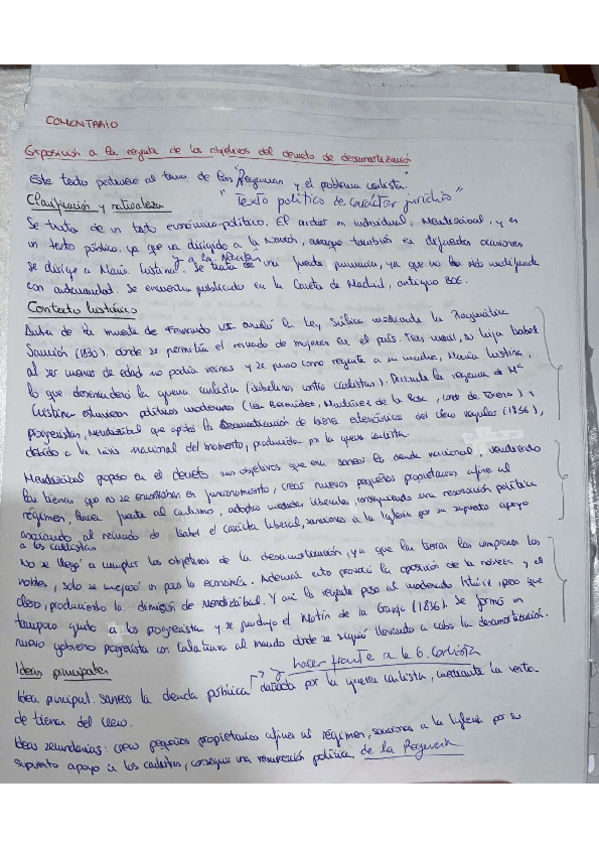 COMENTARIO
Exposición a la regente de los objetivos del decreto de desamortización
Este texto pertenece al tema de las Regencias y el problema carlista.
Clasificación y naturaleza "Texto político de carácter jurídico"
Se trata de un texto económico-político. El autor es individual, Mendizábal, y es
un texto público, ya que va dirigido a la Nación, aunque también en diferentes ocasiones
y a la Nación
se dirige a María Cristina. Se trata de una fuente primaria, ya que no ha sido modificada
con anterioridad. Se encuentra publicado en la Gaceta de Madrid, antiguo BOE.
Contexto histórico
Antes de la muerte de Fernando VII anuló la Ley Sálica mediante la Pragmática
Sanción (1830), donde se permitía el reinado de mujeres en el país. Tras morir, su hija Isabel
al ser menor de edad no podía reinar y se puso como regente a su madre, María Cristina,
lo que desencadenó la guerra carlista (isabelinos contra carlistas). Durante la regencia de Mª
Cristina estuvieron políticos moderados (Cea Bermúdez, Martínez de la Rosa, conde de Toreno) y
progresistas, Mendizábal que aprobó la Desamortización de bienes eclesiásticos del clero regular (1836),
debido a la crisis nacional del momento, producida por la guerra carlista.
Mendizábal propuso en el decreto sus objetivos que era sanear la deuda nacional, vendiendo
las tierras que no se encontraban en funcionamiento, crear nuevos pequeños propietarios afines al
régimen, hacer frente al carlismo, adoptar medidas liberales, consiguiendo una renovación política
asociando al reinado de Isabel el carácter liberal, sanciones a la Iglesia por su supuesto apoyo
a los carlistas
No se llegó a cumplir los objetivos de la desamortización, ya que las tierras las compraron los
nobles, solo se mejoró un poco la economía. Además esto provocó la oposición de la nobleza y el
clero, produciendo la dimisión de Mendizábal. Y así la regente puso al moderado Istúriz, pero que
tampoco gustó a los progresistas y se produjo el Motín de la Granja (1836). Se formó un
nuevo gobierno progresista con Calatrava al mando donde se siguió llevando a cabo la desamortización.
Ideas principales
y hacer frente a la G. Carlista
Idea principal: sanear la deuda pública dañada por la guerra carlista, mediante la venta
de tierras del clero.
Ideas secundarias: crear pequeños propietarios afines al régimen, sanciones a la Iglesia por su
supuesto apoyo a los carlistas, conseguir una renovación política de la Regencia